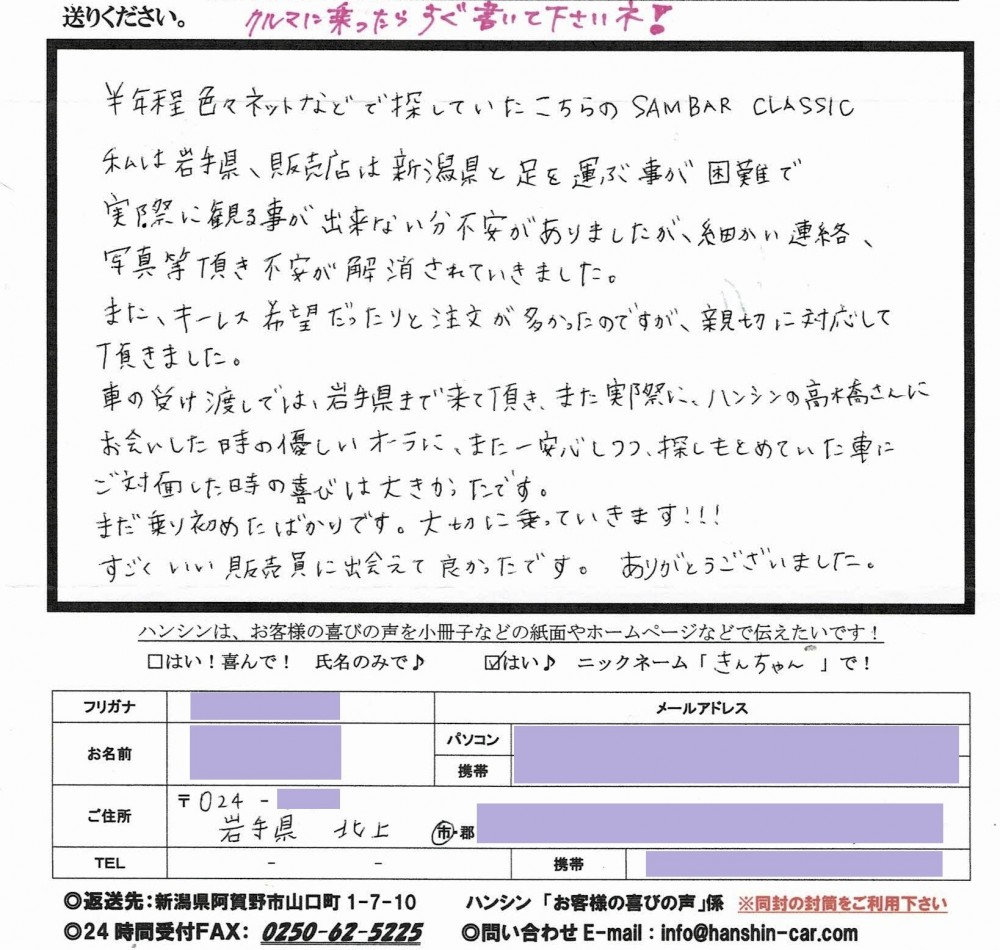 送りください。 クルマに乗ったらすぐ書いて下さいネ!
半年程色々ネットなどで探していたこちらの SAMBAR CLASSIC
私は岩手県、販売店は新潟県と足を運ぶ事が困難で
実際に観る事が出来ない分不安がありましたが、細かい連絡、
写真等頂き不安が解消されていきました。
また、キーレス希望だったりと注文が多かったのですが、親切に対応して
頂きました。
車の受け渡しでは、岩手県まで来て頂き、また実際に、ハンシンの高橋さんに
お会いした時の優しいオーラに、また一安心しつつ、探しもとめていた車に
ご対面した時の喜びは大きかったです。
まだ乗り初めたばかりです。大切に乗っていきます!!!
すごくいい販売員に出会えて良かったです。 ありがとうございました。
ハンシンは、お客様の喜びの声を小冊子などの紙面やホームページなどで伝えたいです!
□はい!喜んで! 氏名のみで♪ ☑はい♪ ニックネーム「きんちゃん」で!
フリガナ メールアドレス
お名前 パソコン
携帯
ご住所 〒024-
岩手県 北上 市・郡
TEL - - 携帯
◎返送先:新潟県阿賀野市山口町1-7-10 ハンシン「お客様の喜びの声」係 ※同封の封筒をご利用下さい
◎24時間受付FAX: 0250-62-5225 ◎問い合わせE-mail:info@hanshin-car.com